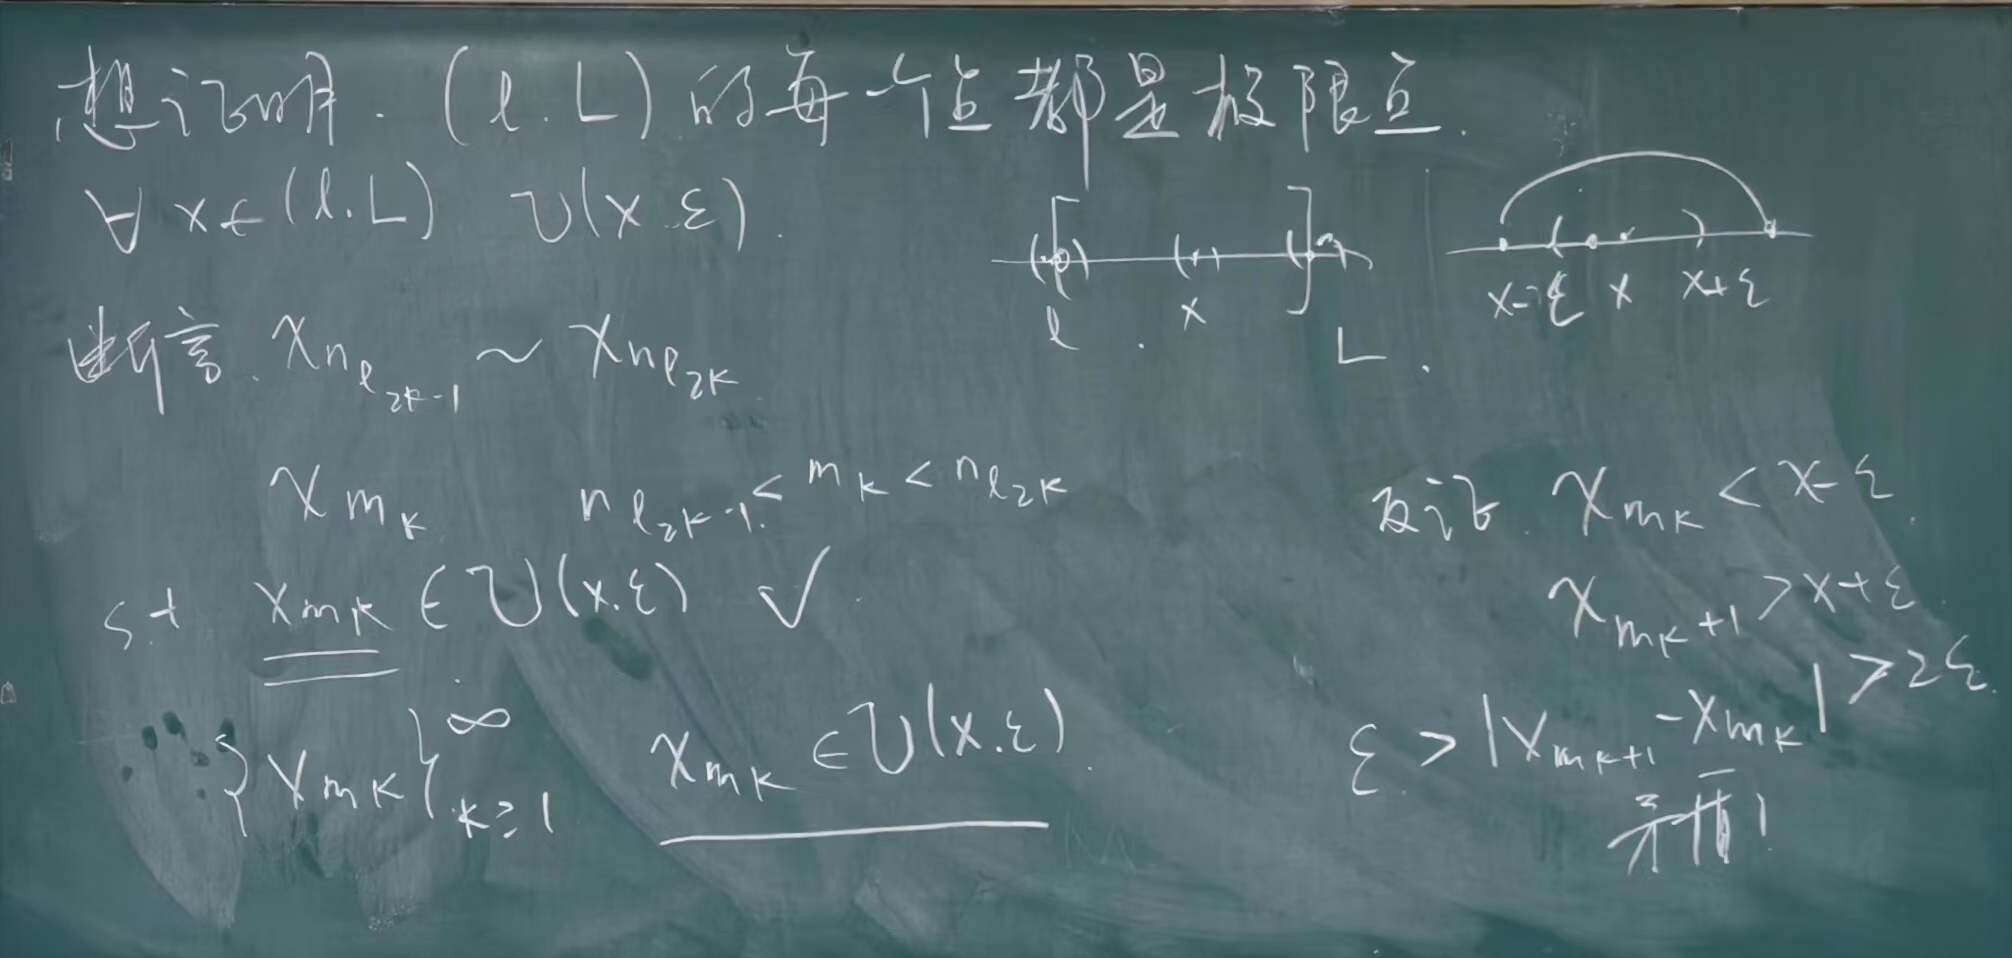 想证明. (l.L) 的每一个点都是极限点.
∀ x∈(l.L) U(x.ε).
l x L
x-ε x x+ε
断言. x_{n_{l_{2k-1}}} ~ x_{n_{l_{2k}}}
x_{m_k} n_{l_{2k-1}} < m_k < n_{l_{2k}}
s.t x_{m_k} ∈ U(x.ε) √
{x_{m_k}}_{k≥1}^∞ x_{m_k} ∈ U(x.ε).
反证. x_{m_k} < x-ε.
x_{m_k+1} > x+ε.
ε > |x_{m_k+1} - x_{m_k}| > 2ε.
矛盾!